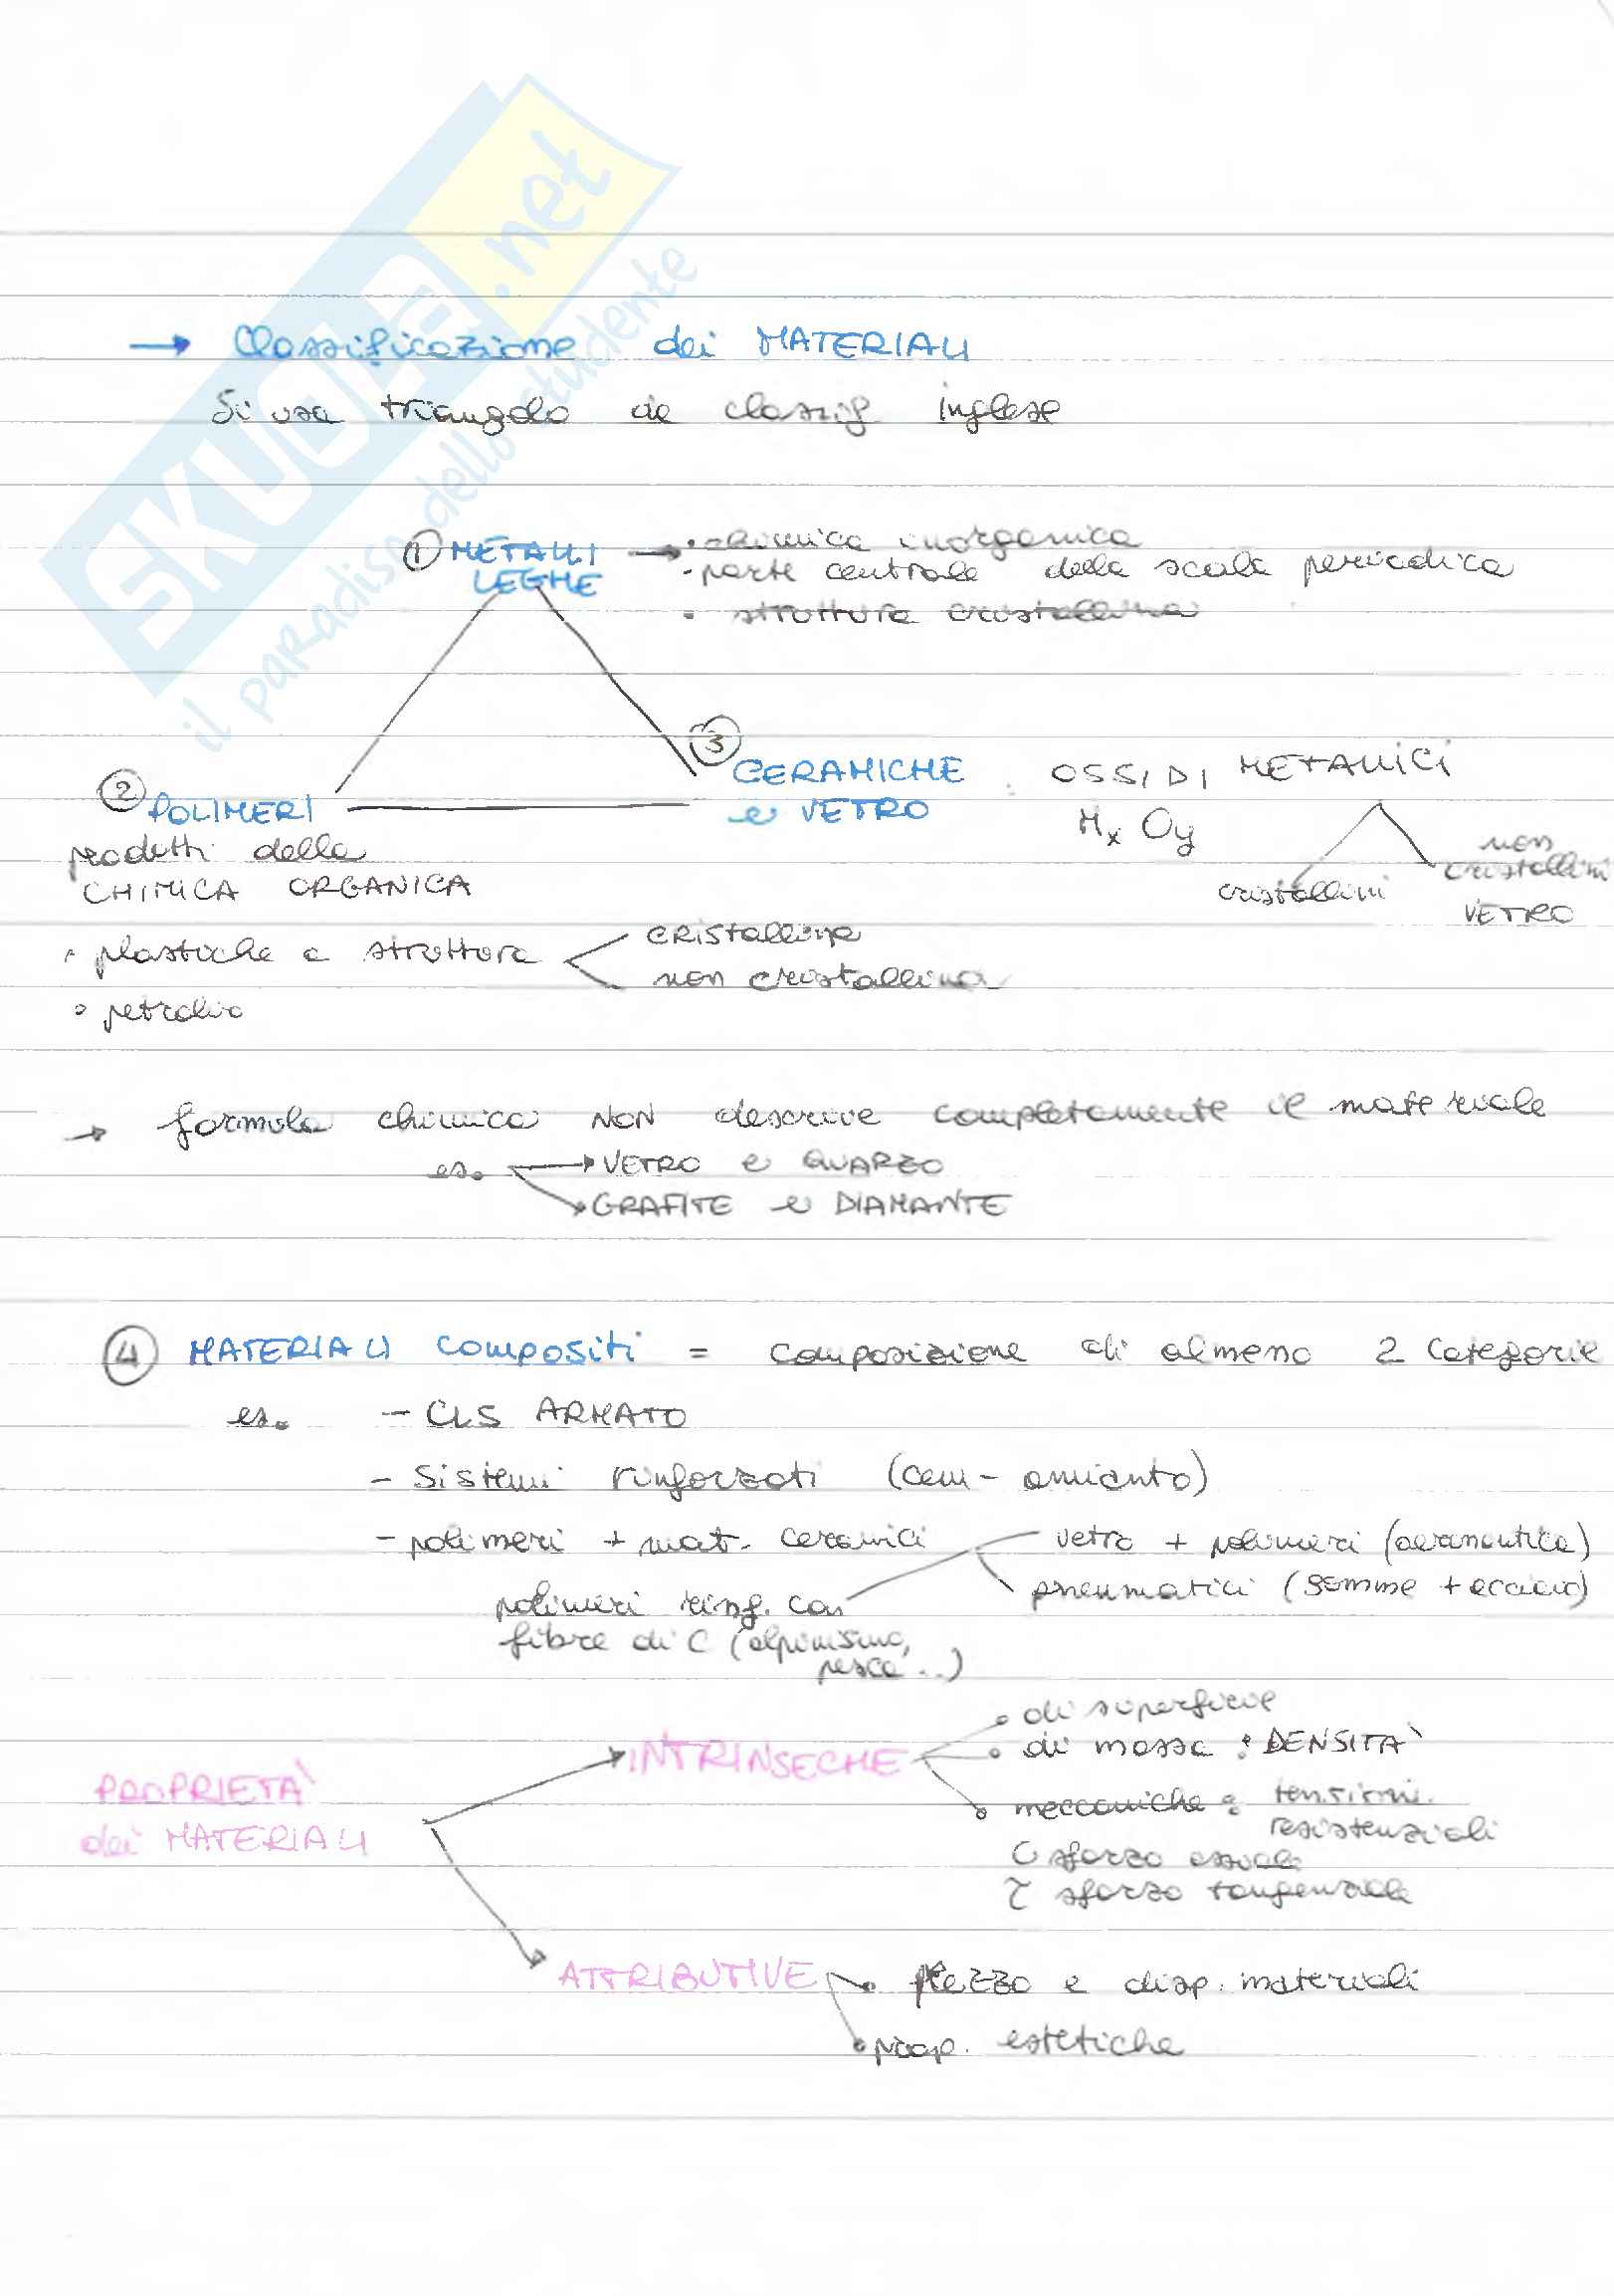 SKUOLA.net
il paradiso dello studente
→ Classificazione dei MATERIALI
Si usa triangolo di classif inglese
① METALLI → • chimica inorganica
LEGHE • parte centrale della scala periodica
• struttura cristallina
③ CERAMICHE : OSSIDI METALLICI
e VETRO MxOy
cristallini
non cristallini
VETRO
② POLIMERI
prodotti della
CHIMICA ORGANICA
• plastiche a struttura cristallina
non cristallina
• petrolio
→ formula chimica NON descrive completamente il materiale
es. → VETRO e QUARZO
→ GRAFITE e DIAMANTE
④ MATERIALI COMPOSITI = composizione di almeno 2 categorie
es. - CLS ARMATO
- Sistemi rinforzati (cem-amianto)
- polimeri + mat. ceramici vetro + polimeri (aeronautica)
pneumatici (gomme + acciaio)
polimeri rinf. con
fibre di C (alpinismo,
pesca...)
PROPRIETÀ
dei MATERIALI
INTRINSECHE • di superficie
• di massa : DENSITÀ
• meccaniche : tensioni
resistenziali
σ sforzo assiale
τ sforzo tangenziale
ATTRIBUTIVE • prezzo e disp. materiali
• prop. estetiche